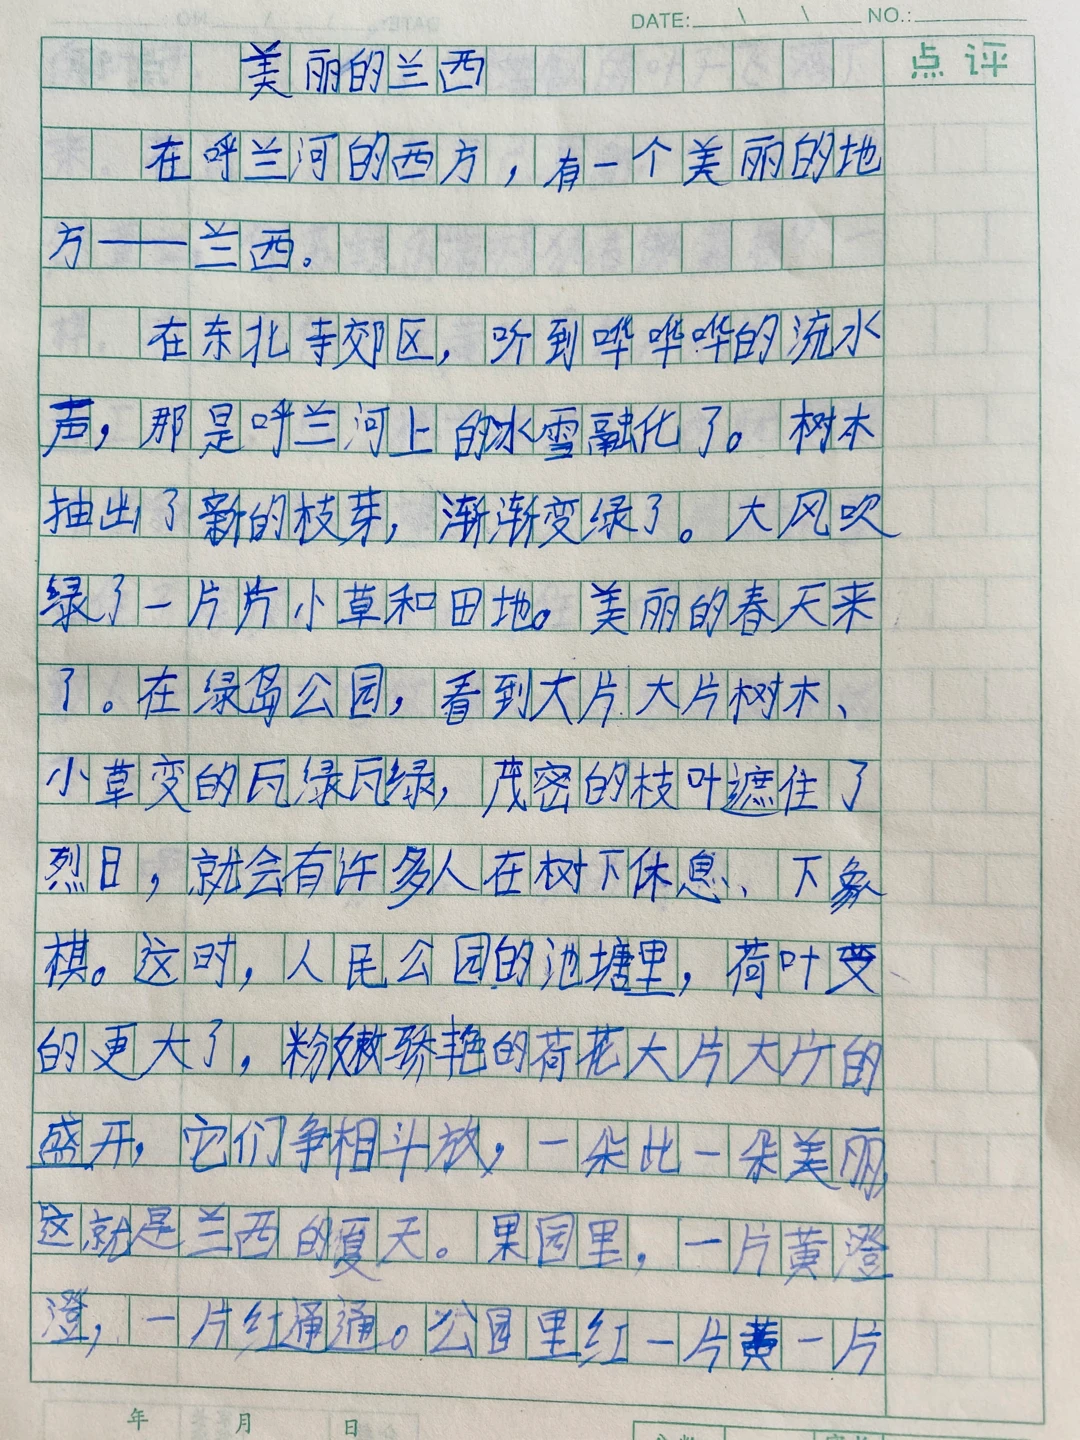 DATE: \ \ NO.:
点 评
美丽的兰西
在呼兰河的西方，有一个美丽的地
方——兰西。
在东北寺郊区，听到哗哗哗的流水
声，那是呼兰河上的冰雪融化了。树木
抽出了新的枝芽，渐渐变绿了。大风吹
绿了一片片小草和田地。美丽的春天来
了。在绿岛公园，看到大片大片树木、
小草变的瓦绿瓦绿，茂密的枝叶遮住了
烈日，就会有许多人在树下休息、下象
棋。这时，人民公园的池塘里，荷叶变
的更大了，粉嫩骄艳的荷花大片大片的
盛开，它们争相斗放，一朵比一朵美丽，
这就是兰西的夏天。果园里，一片黄澄
澄，一片红通通。公园里红一片黄一片
年 月 日